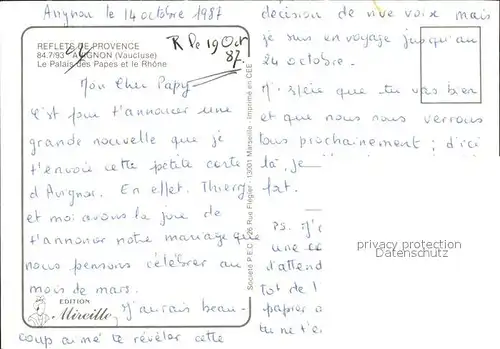 Avignon le 14 octobre 1987
REFLETS DE PROVENCE
84.7/93 - AVIGNON (Vaucluse)
Le Palais des Papes et le Rhône
R le 19 Oct
87.
Mon Cher Papy
C'est pour t'annoncer une
grande nouvelle que je
t'envoie cette petite carte
d'Avignon. En effet, Thierry
et moi avons la joie de
t'annoncer notre mariage que
nous pensons célébrer au
mois de mars.
J'aurais beau-
coup aimé te révéler cette
EDITION
Mireille
Société P.E.C. 226 Rue Flégier - 13001 Marseille - Imprimé en CEE
décision de vive voix mais
je suis en voyage jusqu'au
24 octobre.
J'espère que tu vas bien
et que nous nous verrons
tous prochainement ; d'ici
là, je
fort.
PS. J'
une
d'attend
tot de
papier
tu ne t'
privacy protection
Datenschutz